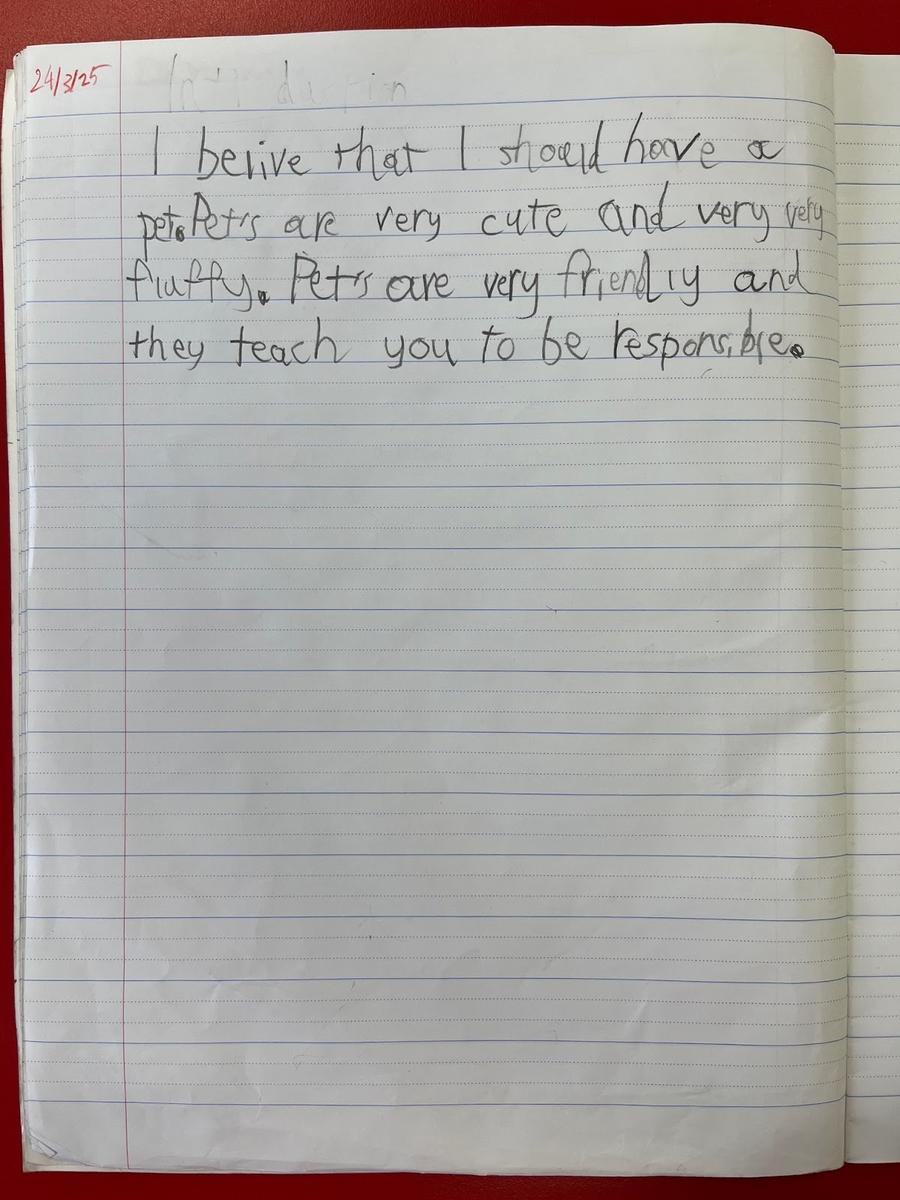 24/3/25
I belive that I should have a
pet. Pet's are very cute and very very
fluffy. Pet's are very friendly and
they teach you to be responsible.